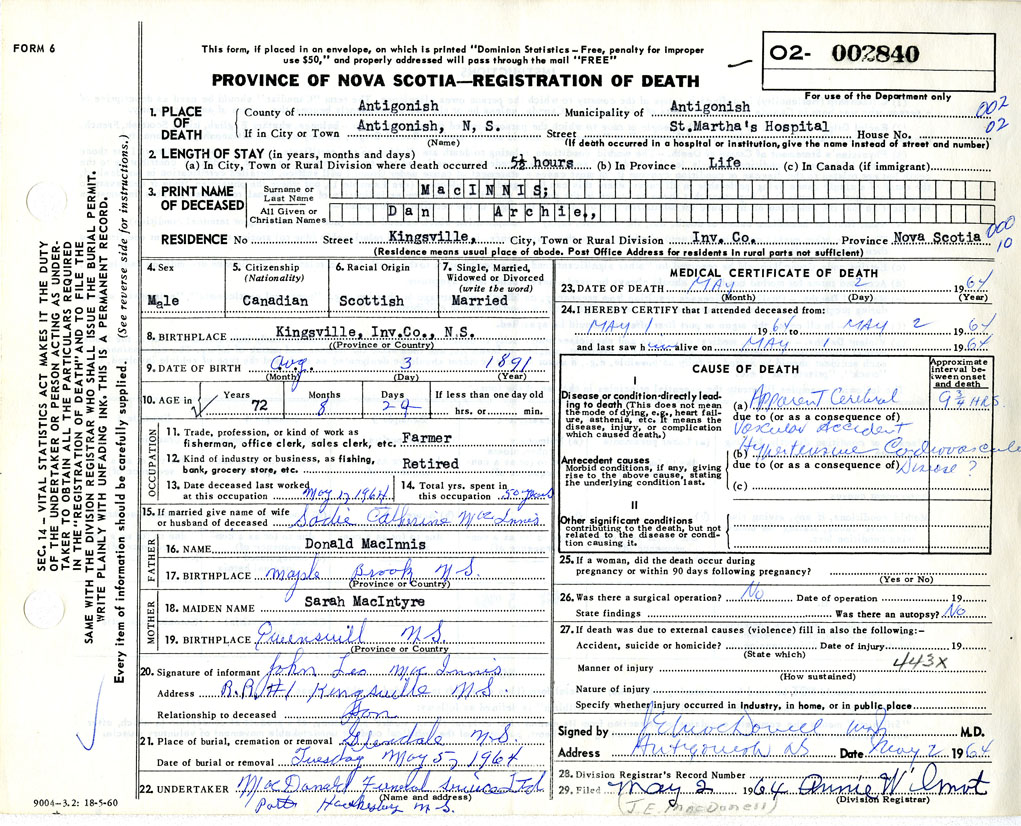 FORM 6
This form, if placed in an envelope, on which is printed "Dominion Statistics – Free, penalty for improper
use $50," and properly addressed will pass through the mail "FREE"
PROVINCE OF NOVA SCOTIA—REGISTRATION OF DEATH
02- 002840
For use of the Department only
SEC. 14 – VITAL STATISTICS ACT MAKES IT THE DUTY
OF THE UNDERTAKER OR PERSON ACTING AS UNDER-
TAKER TO OBTAIN ALL THE PARTICULARS REQUIRED
IN THE "REGISTRATION OF DEATH" AND TO FILE THE
SAME WITH THE DIVISION REGISTRAR WHO SHALL ISSUE THE BURIAL PERMIT.
WRITE PLAINLY WITH UNFADING INK. THIS IS A PERMANENT RECORD.
Every item of information should be carefully supplied. (See reverse side for instructions.)
1. PLACE OF DEATH
County of Antigonish Municipality of Antigonish 002
If in City or Town Antigonish, N, S. Street St.Martha's Hospital House No. 02
(Name) (If death occurred in a hospital or institution, give the name instead of street and number)
2. LENGTH OF STAY (in years, months and days)
(a) In City, Town or Rural Division where death occurred 5½ hours (b) In Province Life (c) In Canada (if immigrant)
3. PRINT NAME OF DECEASED
Surname or Last Name MacINNIS;
All Given or Christian Names Dan Archie.,
000
10
RESIDENCE No Street Kingsville, City, Town or Rural Division Inv. Co. Province Nova Scotia
(Residence means usual place of abode. Post Office Address for residents in rural parts not sufficient)
4. Sex Male
5. Citizenship (Nationality) Canadian
6. Racial Origin Scottish
7. Single, Married, Widowed or Divorced (write the word) Married
8. BIRTHPLACE Kingsville, Inv.Co., N.S.
((Province or Country)
9. DATE OF BIRTH Aug. 3 1891
(Month) (Day) (Year)
10. AGE in Years 72 Months 8 Days 29 If less than one day old hrs. or min.
OCCUPATION
11. Trade, profession, or kind of work as
fisherman, office clerk, sales clerk, etc. Farmer
12. Kind of industry or business, as fishing,
bank, grocery store, etc. Retired
13. Date deceased last worked
at this occupation May 1, 1964
14. Total yrs. spent in
this occupation 50 years
15. If married give name of wife
or husband of deceased Sadie Catherine MacInnis
FATHER
16. NAME Donald MacInnis
17. BIRTHPLACE Maple Brook N.S.
(Province or Country)
MOTHER
18. MAIDEN NAME Sarah MacIntyre
19. BIRTHPLACE Queensvill N.S.
(Province or Country
20. Signature of informant John Leo MacInnis
Address R.R.#1 Kingsville N.S.
Relationship to deceased Son
21. Place of burial, cremation or removal Glendale N.S.
Date of burial or removal Tuesday May 5, 1964
22. UNDERTAKER MacDonald Funeral Services Ltd
(Name and address)
Port Hawkesbury N.S.
9004-3.2: 18-5-60
MEDICAL CERTIFICATE OF DEATH
23. DATE OF DEATH MAY 2 1964
(Month) (Day) (Year)
24. I HEREBY CERTIFY that I attended deceased from:
MAY 1 1964 to MAY 2 1964
and last saw h alive on MAY 1 1964
CAUSE OF DEATH
Approximate interval be-tween onset and death
I
Disease or condition directly lead-
ing to death (This does not mean
the mode of dying, e.g., heart fail-
ure, asthenia, etc. It means the
disease, injury, or complication
which caused death.)
(a) Apparent Cerebral 9¾ HRS
due to (or as a consequence of)
Vascular Accident
(b) Hypertensive Cardiovascular
due to (or as a consequence of) Disease ?
(c)
Antecedent causes
Morbid conditions, if any, giving
rise to the above cause, stating
the underlying condition last.
II
Other significant conditions
contributing to the death, but not
related to the disease or condi-
tion causing it.
25. If a woman, did the death occur during
pregnancy or within 90 days following pregnancy?
(Yes or No)
26. Was there a surgical operation? No Date of operation 19
State findings Was there an autopsy? No
27. If death was due to external causes (violence) fill in also the following:–
Accident, suicide or homicide? Date of injury 19
(State which)
Manner of injury 443X
(How sustained)
Nature of injury
Specify whether injury occurred in industry, in home, or in public place
Signed by J E MacDonell M.D.
Address Antigonish NS Date May 2 1964
28. Division Registrar's Record Number
29. Filed May 2 1964 Annie Wilmot
(Division Registrar)
(J.E. MacDonell)